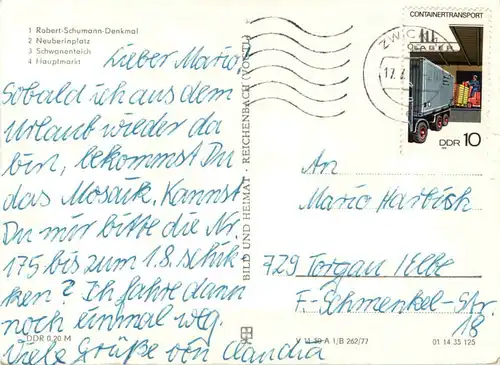 1 Robert-Schumann-Denkmal
2 Neuberinplatz
3 Schwanenteich
4 Hauptmarkt
Lieber Mario!
Sobald ich aus dem
Urlaub wieder da
bin, bekommst Du
das Mosaik. Kannst
Du mir bitte die Nr.
175 bis zum 1.8. schik-
ken? Ich fahre dann
noch einmal weg.
Viele Grüße von Claudia
DDR 0,20 M
BILD UND HEIMAT · REICHENBACH (VOGTL)
CONTAINERTRANSPORT
DDR 10
An
Mario Harbich
729 Torgau / Elbe
F.-Schmenkel-Str.
18
V 11 30 A 1/B 262/77
01 14 35 125